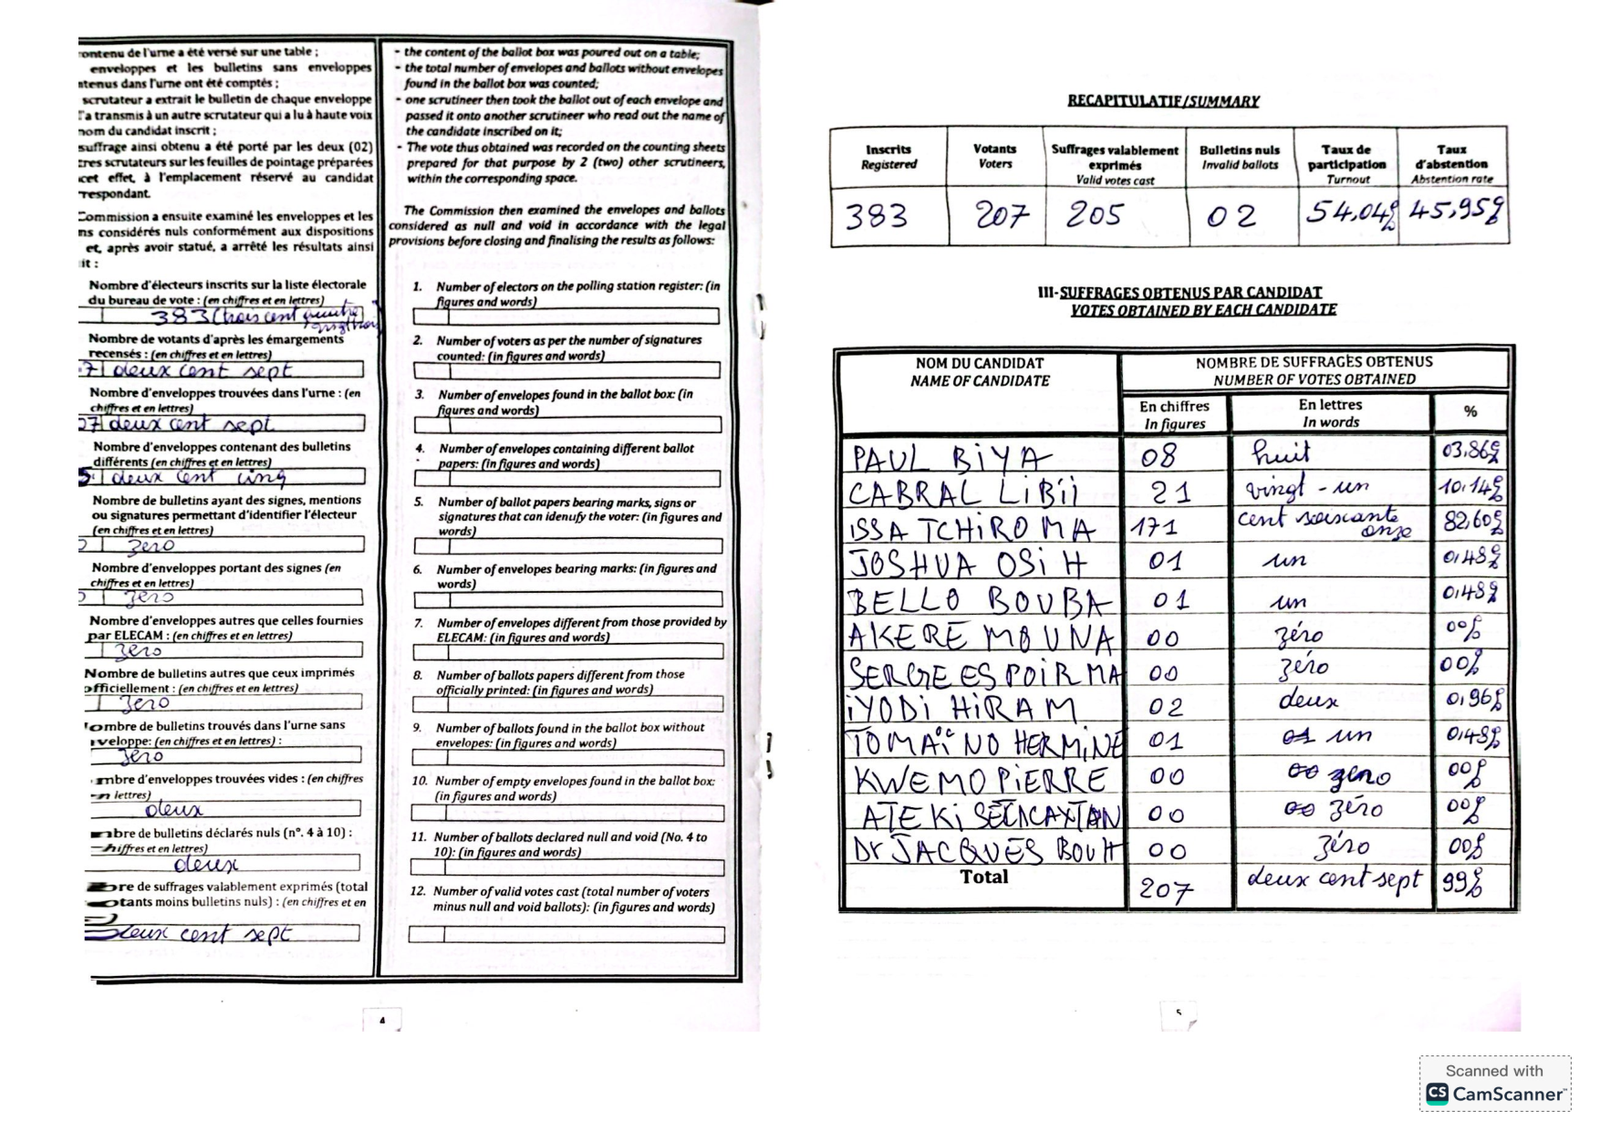 ontenu de l'urne a été versé sur une table ;
enveloppes et les bulletins sans enveloppes
ntenus dans l'urne ont été comptés ;
scrutateur a extrait le bulletin de chaque enveloppe
l'a transmis à un autre scrutateur qui a lu à haute voix
nom du candidat inscrit ;
suffrage ainsi obtenu a été porté par les deux (02)
tres scrutateurs sur les feuilles de pointage préparées
cet effet, à l'emplacement réservé au candidat
respondant.
Commission a ensuite examiné les enveloppes et les
ns considérés nuls conformément aux dispositions
et, après avoir statué, a arrêté les résultats ainsi
it :
Nombre d'électeurs inscrits sur la liste électorale
du bureau de vote : (en chiffres et en lettres)
383 (trois cent quatre
vingt trois
Nombre de votants d'après les émargements
recensés : (en chiffres et en lettres)
7 deux cent sept
Nombre d'enveloppes trouvées dans l'urne : (en
chiffres et en lettres)
07 deux cent sept
Nombre d'enveloppes contenant des bulletins
différents (en chiffres et en lettres)
5 deux cent cinq
Nombre de bulletins ayant des signes, mentions
ou signatures permettant d'identifier l'électeur
(en chiffres et en lettres)
0 zero
Nombre d'enveloppes portant des signes (en
chiffres et en lettres)
0 zero
Nombre d'enveloppes autres que celles fournies
par ELECAM : (en chiffres et en lettres)
zero
Nombre de bulletins autres que ceux imprimés
officiellement : (en chiffres et en lettres)
zero
ombre de bulletins trouvés dans l'urne sans
veloppe: (en chiffres et en lettres) :
zero
mbre d'enveloppes trouvées vides : (en chiffres
n lettres)
deux
mbre de bulletins déclarés nuls (n°. 4 à 10) :
hiffres et en lettres)
deux
re de suffrages valablement exprimés (total
otants moins bulletins nuls) : (en chiffres et en
deux cent sept
- the content of the ballot box was poured out on a table;
- the total number of envelopes and ballots without envelopes
found in the ballot box was counted;
- one scrutineer then took the ballot out of each envelope and
passed it onto another scrutineer who read out the name of
the candidate inscribed on it;
- The vote thus obtained was recorded on the counting sheets
prepared for that purpose by 2 (two) other scrutineers,
within the corresponding space.
The Commission then examined the envelopes and ballots
considered as null and void in accordance with the legal
provisions before closing and finalising the results as follows:
1. Number of electors on the polling station register: (in
figures and words)
2. Number of voters as per the number of signatures
counted: (in figures and words)
3. Number of envelopes found in the ballot box: (in
figures and words)
4. Number of envelopes containing different ballot
papers: (in figures and words)
5. Number of ballot papers bearing marks, signs or
signatures that can idenufy the voter: (in figures and
words)
6. Number of envelopes bearing marks: (in figures and
words)
7. Number of envelopes different from those provided by
ELECAM: (in figures and words)
8. Number of ballots papers different from those
officially printed: (in figures and words)
9. Number of ballots found in the ballot box without
envelopes: (in figures and words)
10. Number of empty envelopes found in the ballot box:
(in figures and words)
11. Number of ballots declared null and void (No. 4 to
10): (in figures and words)
12. Number of valid votes cast (total number of voters
minus null and void ballots): (in figures and words)
4
RECAPITULATIF/SUMMARY
Inscrits Votants Suffrages valablement exprimés Bulletins nuls Taux de participation Taux d'abstention
Registered Voters Valid votes cast Invalid ballots Turnout Abstention rate
383 207 205 02 54,04% 45,95%
III-SUFFRAGES OBTENUS PAR CANDIDAT
VOTES OBTAINED BY EACH CANDIDATE
NOM DU CANDIDAT NOMBRE DE SUFFRAGES OBTENUS
NAME OF CANDIDATE NUMBER OF VOTES OBTAINED
En chiffres En lettres %
In figures In words
PAUL BIYA 08 huit 03,86%
CABRAL LIBII 21 vingt-un 10,14%
ISSA TCHIROMA 171 cent soixante onze 82,60%
JOSHUA OSIH 01 un 0,48%
BELLO BOUBA 01 un 0,48%
AKERE MOUNA 00 zéro 00%
SERGE ESPOIR MA 00 zéro 00%
IYODI HIRAM 02 deux 0,96%
TOMAÏNO HERMINE 01 01 un 0,48%
KWEMO PIERRE 00 00 zero 00%
ATEKI 00 00 zéro 00%
Dr JACQUES BOUH 00 zéro 00%
Total 207 deux cent sept 99%
5
Scanned with
CS CamScanner